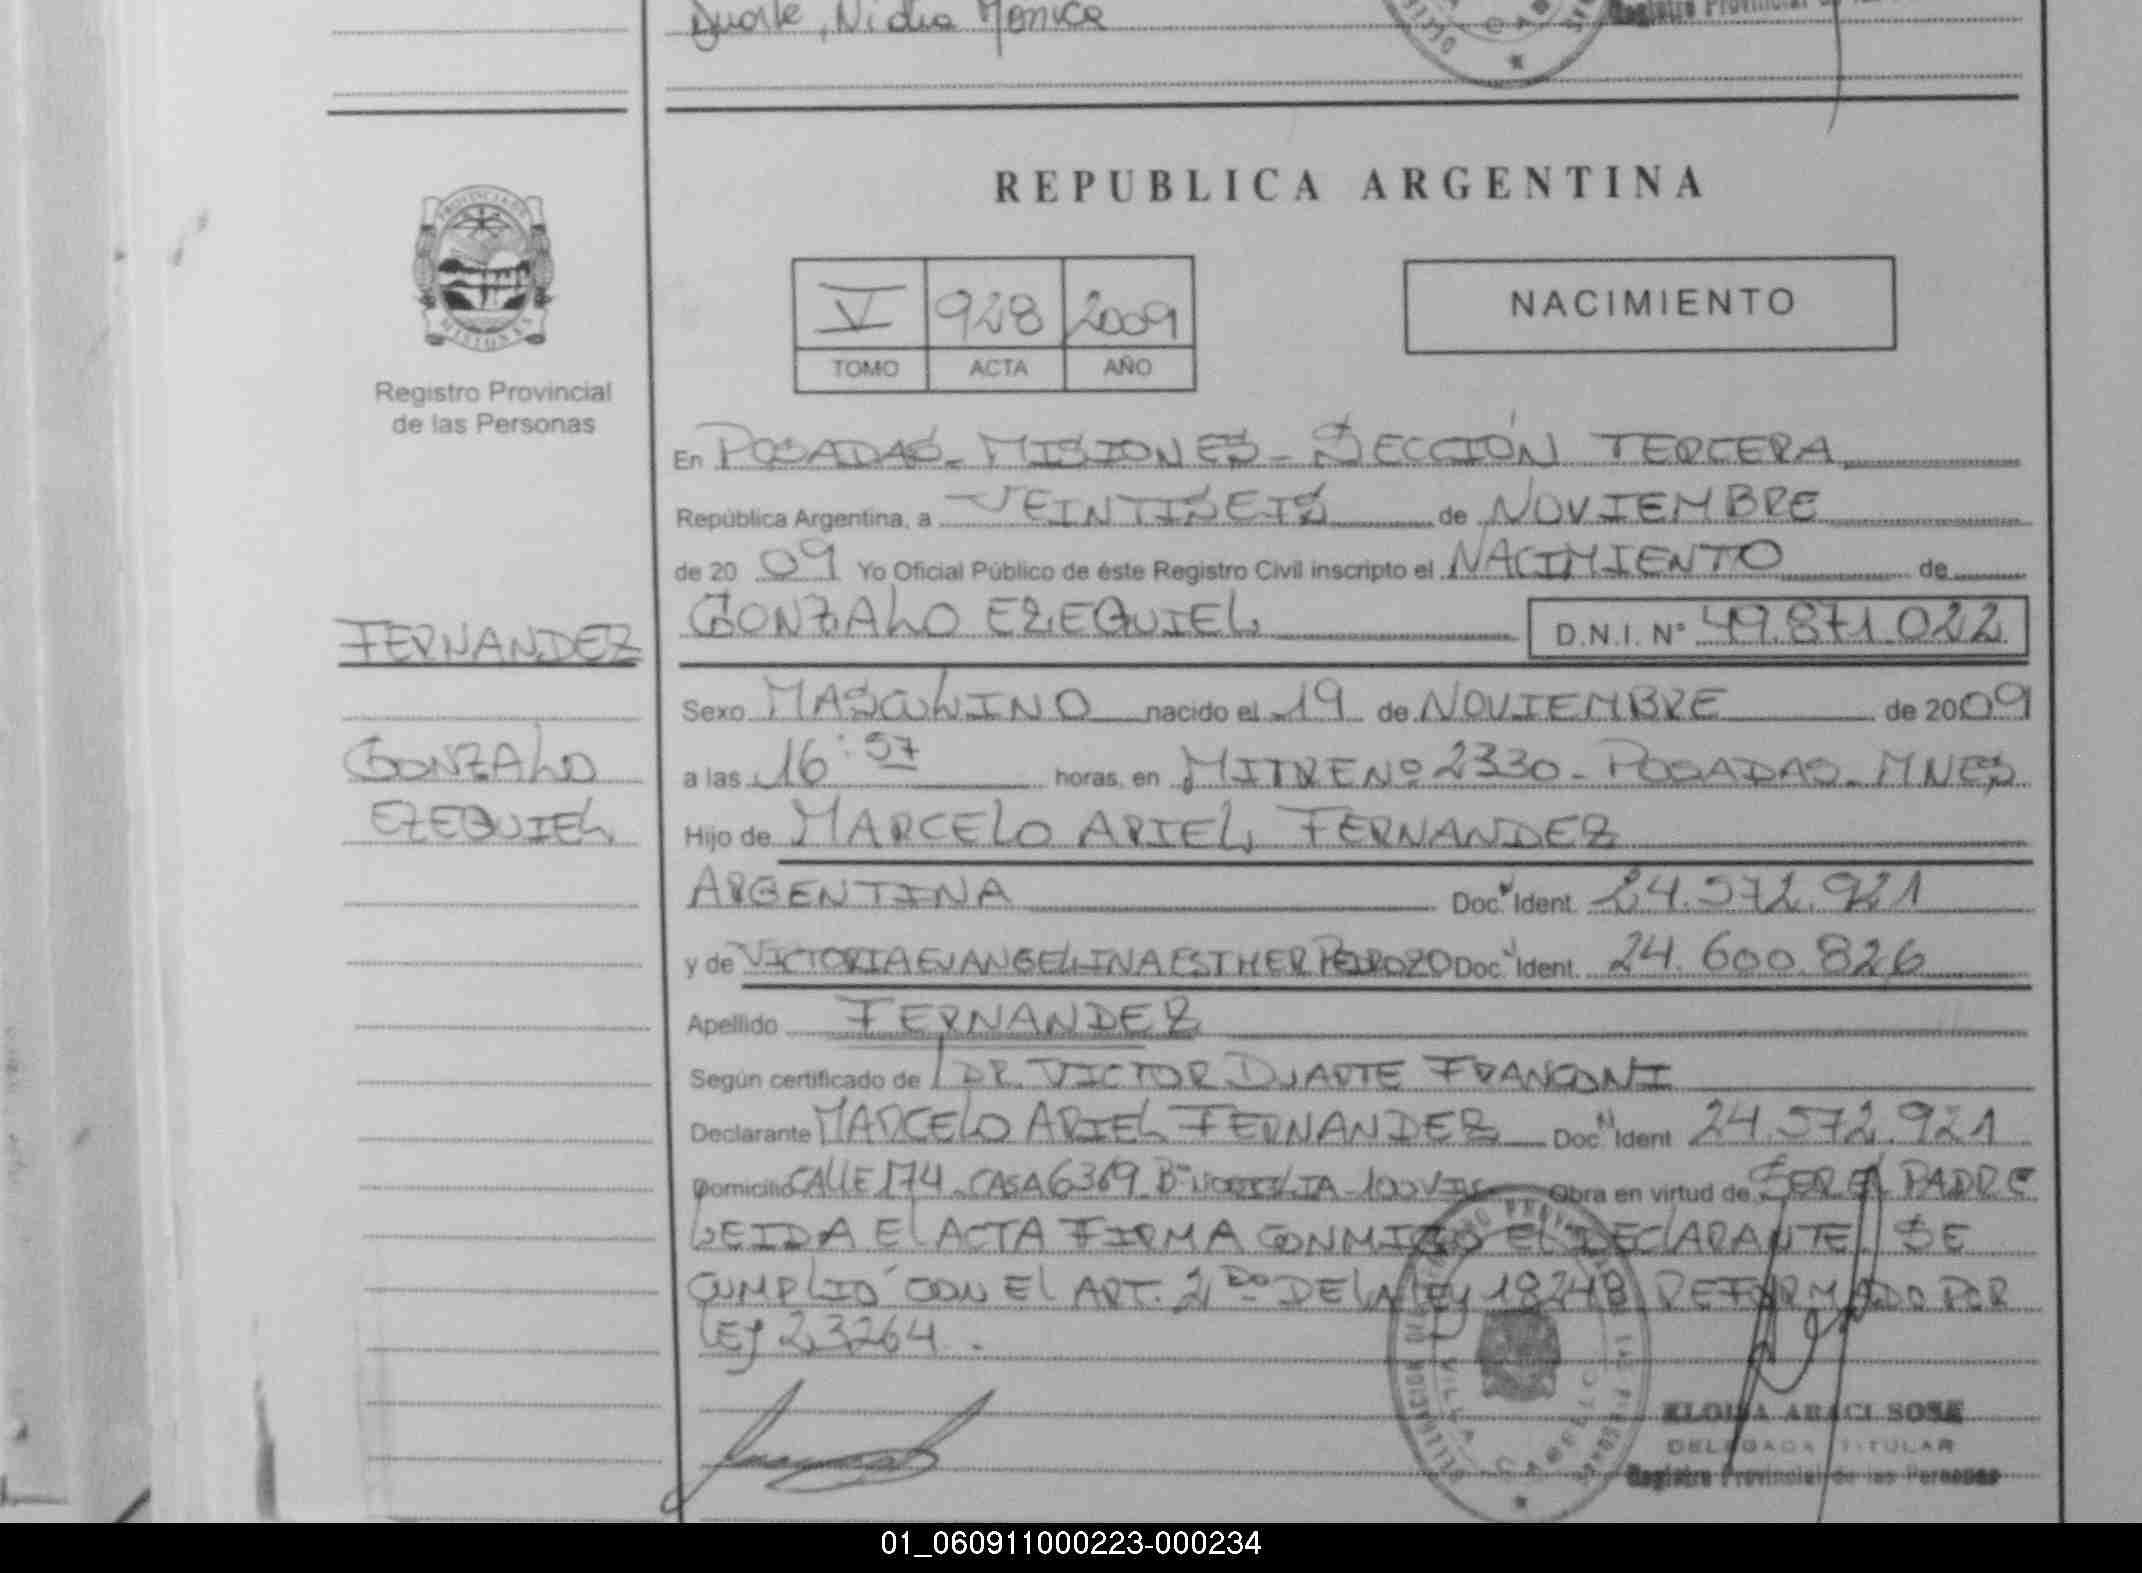 Duarte, Nidia Monica
REPUBLICA ARGENTINA
PROVINCIA DE
MISIONES
Registro Provincial
de las Personas
V 928 2009
TOMO ACTA AÑO
NACIMIENTO
En POSADAS - MISIONES - SECCIÓN TERCERA
República Argentina, a VEINTISEIS de NOVIEMBRE
de 20 09 Yo Oficial Público de éste Registro Civil inscripto el NACIMIENTO de
GONZALO EZEQUIEL D.N.I. Nº 49.871.022
FERNANDEZ
GONZALO
EZEQUIEL
Sexo MASCULINO nacido el 19 de NOVIEMBRE de 2009
a las 16:57 horas, en MITRE Nº 2330 - POSADAS - MNES
Hijo de MARCELO ARIEL FERNANDEZ
ARGENTINA Doc. Ident. 24.572.921
y de VICTORIA EVANGELINA ESTHER PEDROZO Doc. Ident. 24.600.826
Apellido FERNANDEZ
Según certificado de DR. VICTOR DUARTE FRANCONI
Declarante MARCELO ARIEL FERNANDEZ Doc. Ident 24.572.921
Domicilio CALLE 174 - CASA 6369 Bº 100 VIV Obra en virtud de SER EL PADRE
LEIDA El ACTA FIRMA CONMIGO El DECLARANTE. SE
CUMPLIÓ CON El ART. 2do DE LA LEY 18248 REFORMADO POR
LEY 23264.
ELOISA ARACI SOSE
DELEGADA TITULAR
Registro Provincial de las Personas
01_060911000223-000234